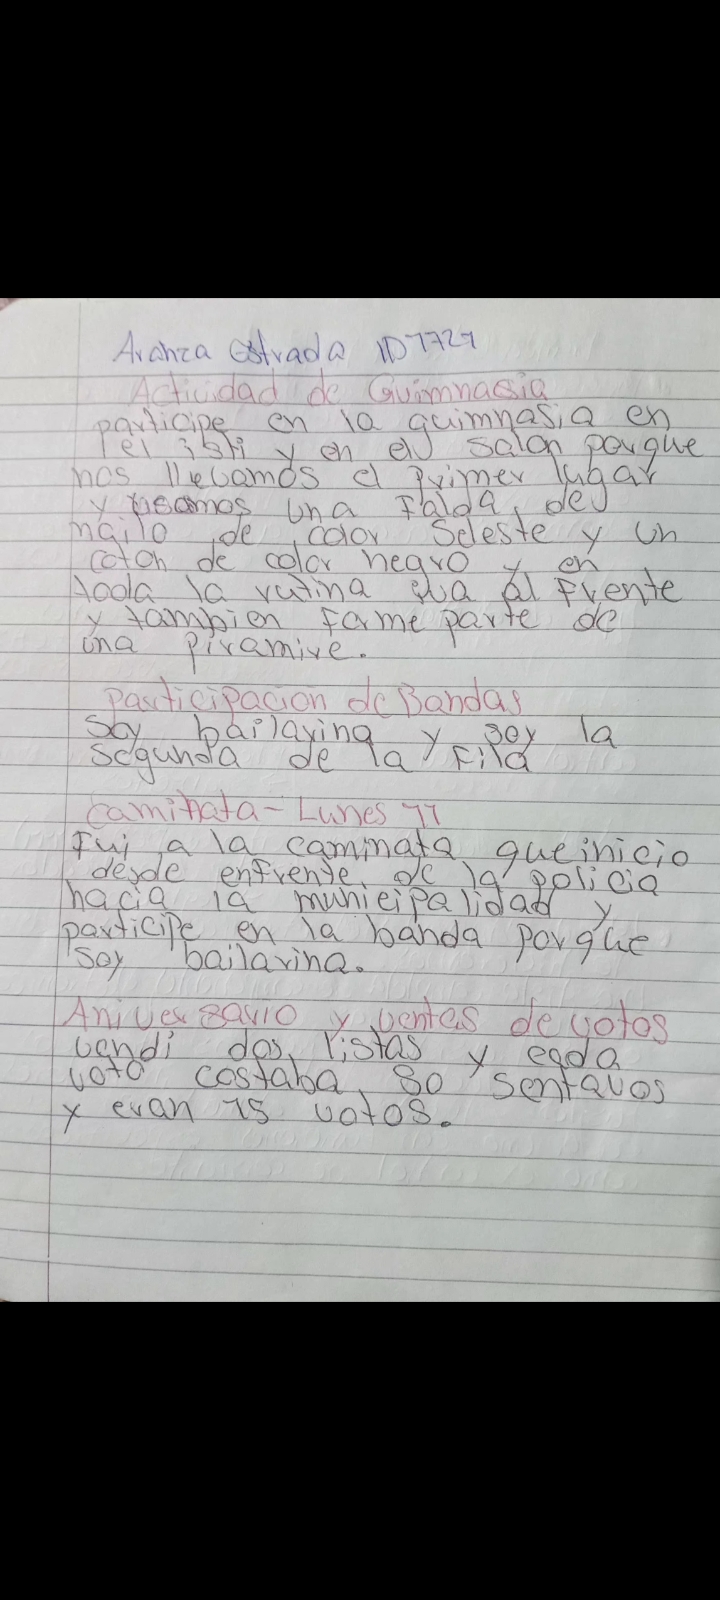 Aranza estrada ID7727
Actividad de Guimnasia
participe en la guimnasia en
el isti y en el salon porque
nos llevamos el primer lugar
y usamos una falda, de
nailo de color Seleste y un
coton de color negro y en
toda la rutina iva al frente
y tambien forme parte de
una piramive.
participacion de Bandas
Soy bailarina y soy la
segunda de la fila
caminata - Lunes 11
Fui a la caminata que inicio
desde enfrente de la policia
hacia la municipalidad y
participe en la banda porque
soy bailarina.
Aniversario y ventas de votos
vendi dos listas y cada
voto costaba 50 sentavos
y eran 15 votos.